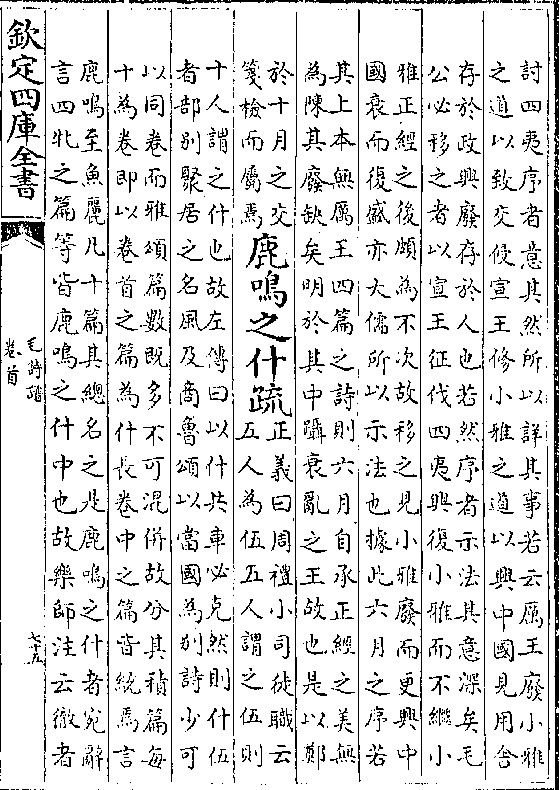 討四夷序者意其然所以詳其事若云厲王廢小雅
之道以致交侵宣王修小雅之道以興中國見用舍
存於政興廢存於人也若然序者示法其意深矣毛
公必移之者以宣王征伐四夷興復小雅而不繼小
雅正經之後頗為不次故移之見小雅廢而更興中
國衰而復盛亦大儒所以示法也據此六月之序若
其上本無厲王四篇之詩則六月自承正經之美無
為陳其廢缺矣明於其中躡衰亂之王故也是以鄭
於十月之交
箋檢而屬焉
鹿鳴之什疏
正義曰周禮小司徒職云
五人為伍五人謂之伍則
十人謂之什也故左傳曰以什共車必克然則什伍
者部別聚居之名風及商魯頌以當國為別詩少可
以同卷而雅頌篇數既多不可混併故分其積篇每
十為卷即以卷首之篇為什長卷中之篇皆統焉言
鹿鳴至魚麗凡十篇其總名之是鹿鳴之什者宛辭
言四牡之篇等皆鹿鳴之什中也故樂師注云徹者
欽定四庫全書
毛詩譜
卷首
七十五